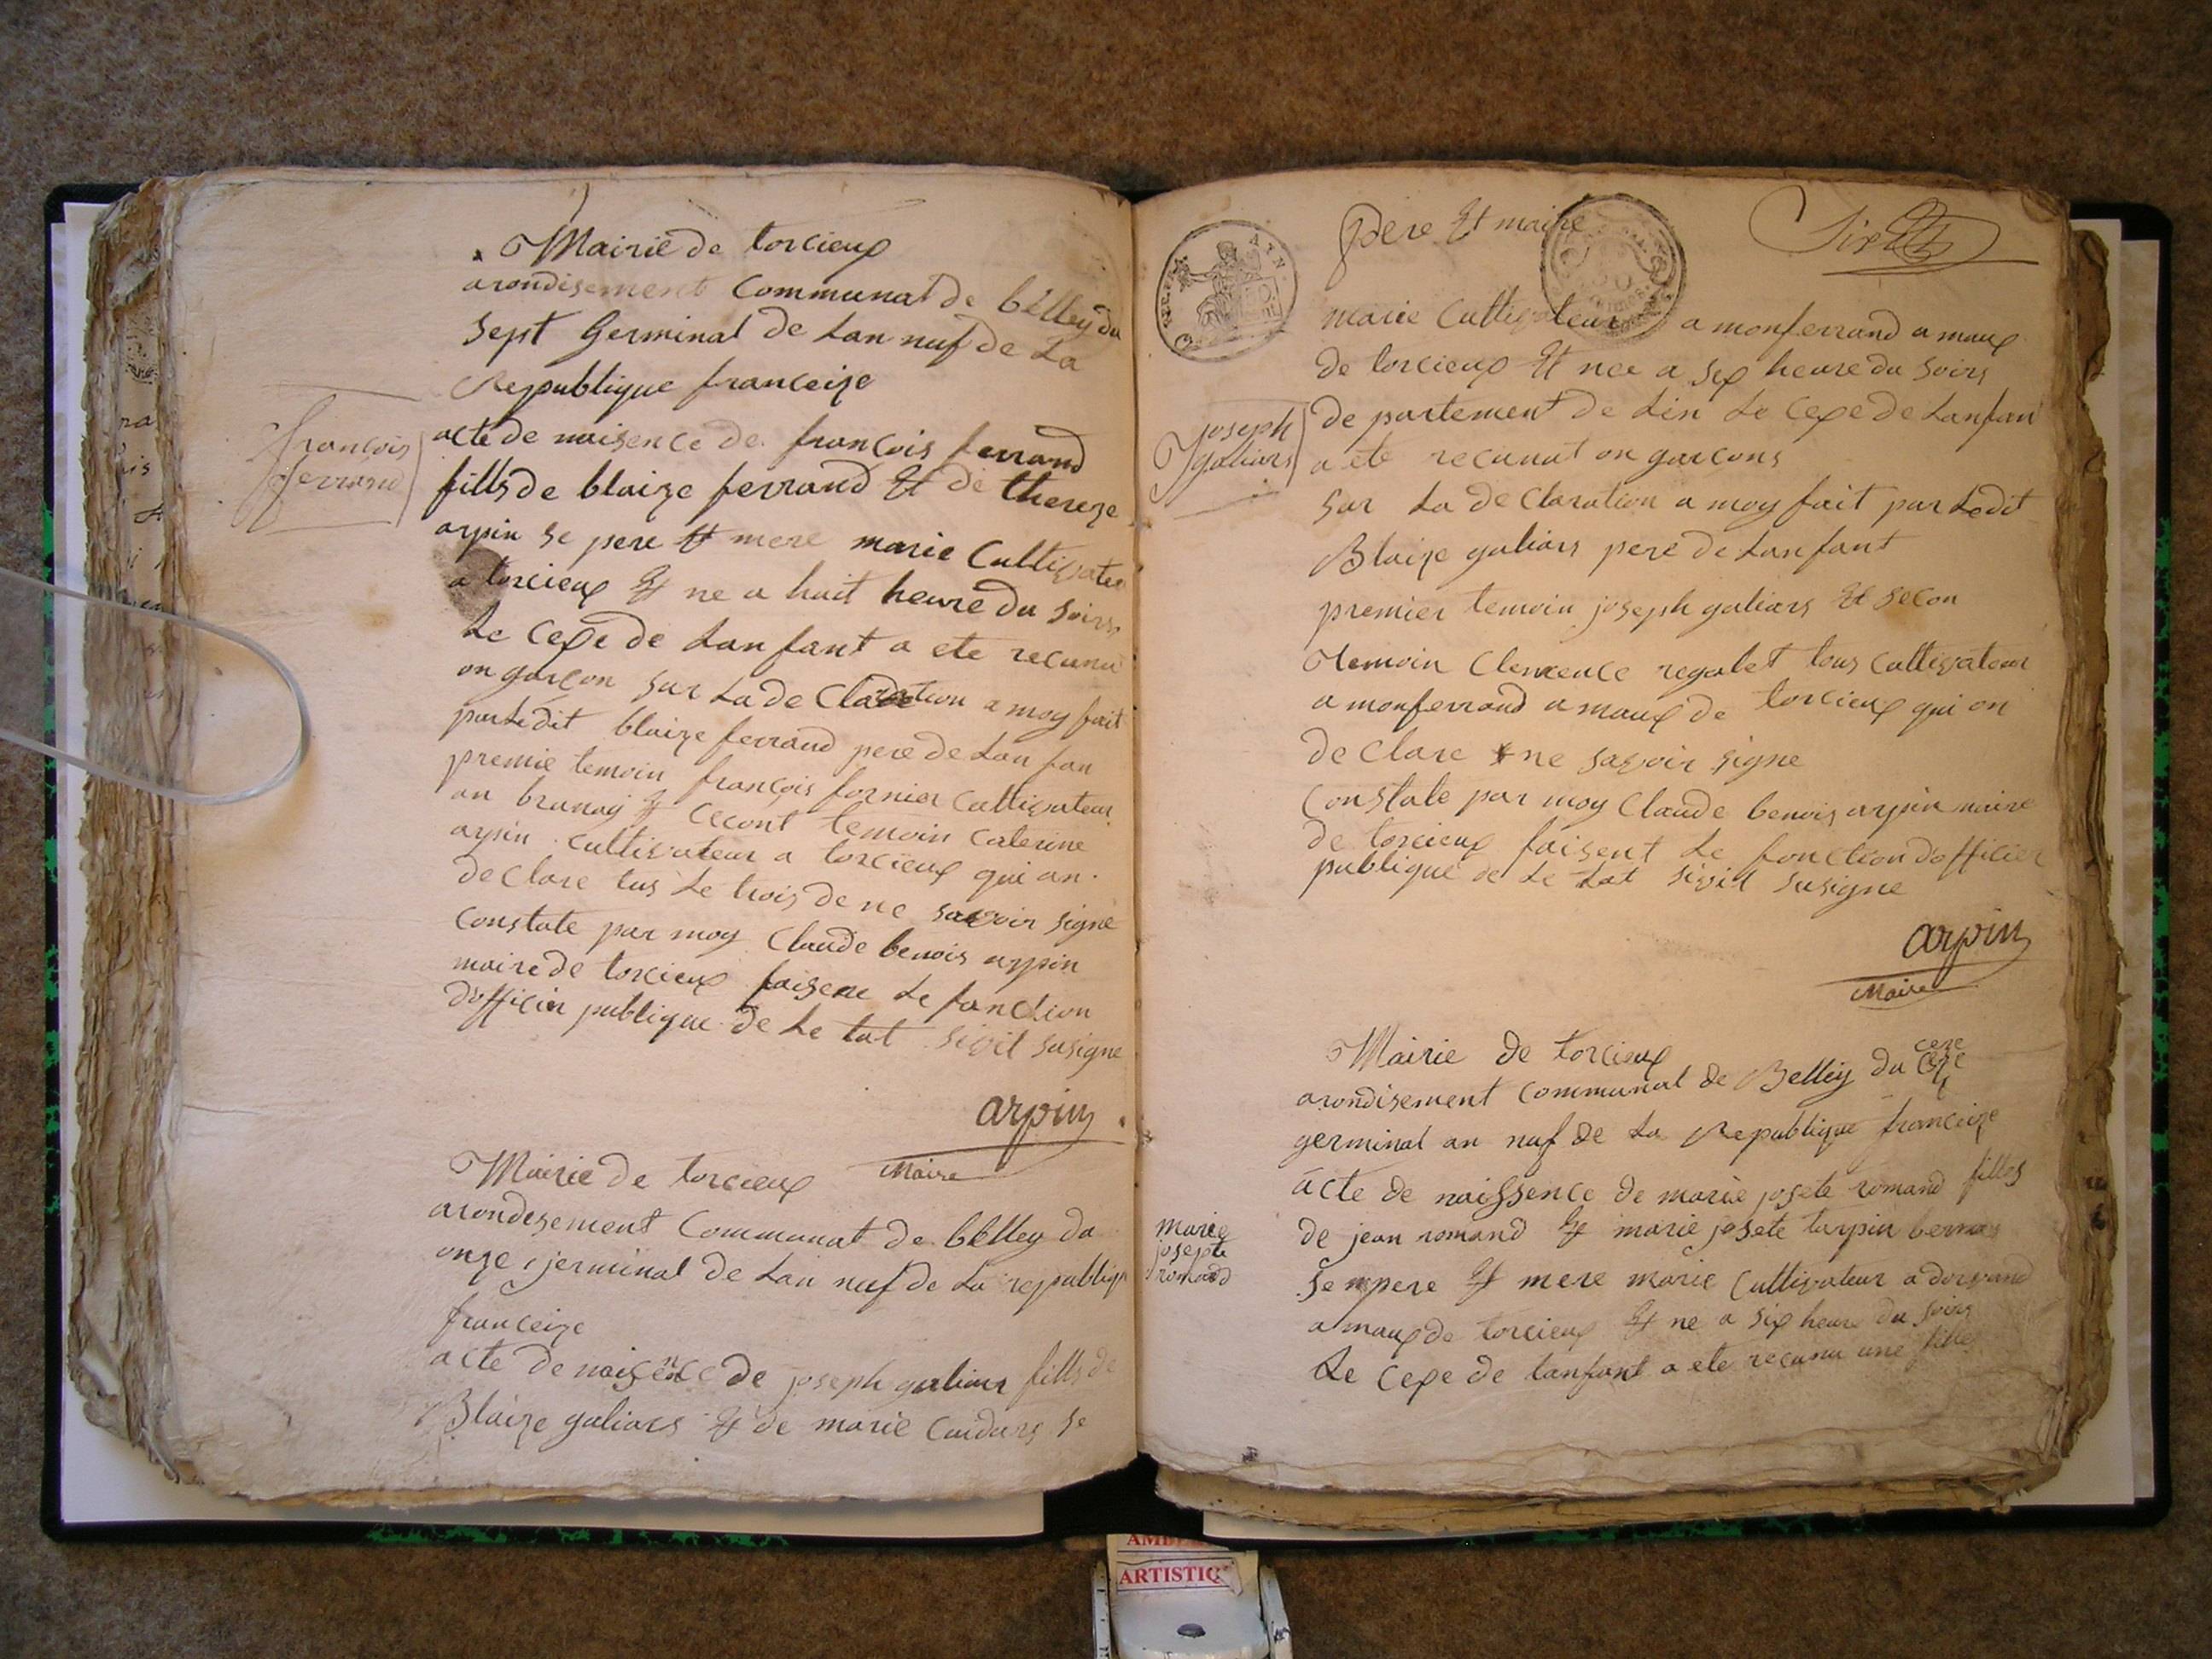 Mairie de torcieux
arondisement Communal de belley du
sept Germinal de Lan nuf de La
Republique franceize
françois
ferrand
acte de naisence de françois ferrand
fills de blaize ferrand Et de thereze
arpin se pere Et mere marie Cultivateu
a torcieux Et ne a huit heure du soirs
Le cexe de Lanfant a ete recunu
on garçon sur La de Claration a moy fait
par Ledit blaize ferrand pere de Lan fan
premie temoin françois fornier Cultivateur
au brunay Et cecont temoin Caterine
arpin Cultivateur a torcieux qui an
de Clare tus Le trois de ne savoir signe
Constate par moy Claude benois arpin
maire de torcieux faisent Le fonction
d'officier publique de Le tat sivil susigne
arpin
Maire
Mairie de torcieux
arondisement Communal de belley du
onze jerminal de Lan nuf de La republiq
franceize
acte de naisence de joseph galiars fills de
Blaize galiars Et de marie se
pere Et maire
marie Cultivateur a monferrand a maux
de torcieux Et nee a sex heure du soirs
joseph
galiars
de partement de Lin Le Cexe de Lanfan
a ete recunut on garcons
sur La de Claration a moy fait par Ledit
Blaize galiars pere de Lanfant
premier temoin joseph galiars Et secon
temoin Clemence regalet tous Cultivateur
a monferrand a maux de torcieux qui on
de Clare ne savoir signe
Constate par moy Claude benois arpin maire
de torcieux faisent Le fonction d'officier
publique de Le tat sivil susigne
arpin
Maire
Mairie de torcieux
arondisement Communal de Belley du ceze
germinal an nuf de La Republique franceize
acte de naissence de marie josete romand filles
marie
josepte
romand
de jean romand Et marie josete tarpin
se pere Et mere marie Cultivateur a dorvand
a maux de torcieux Et ne a six heure du soirs
Le cexe de Lanfant a ete recunu une fille
AMB
ARTISTIQ